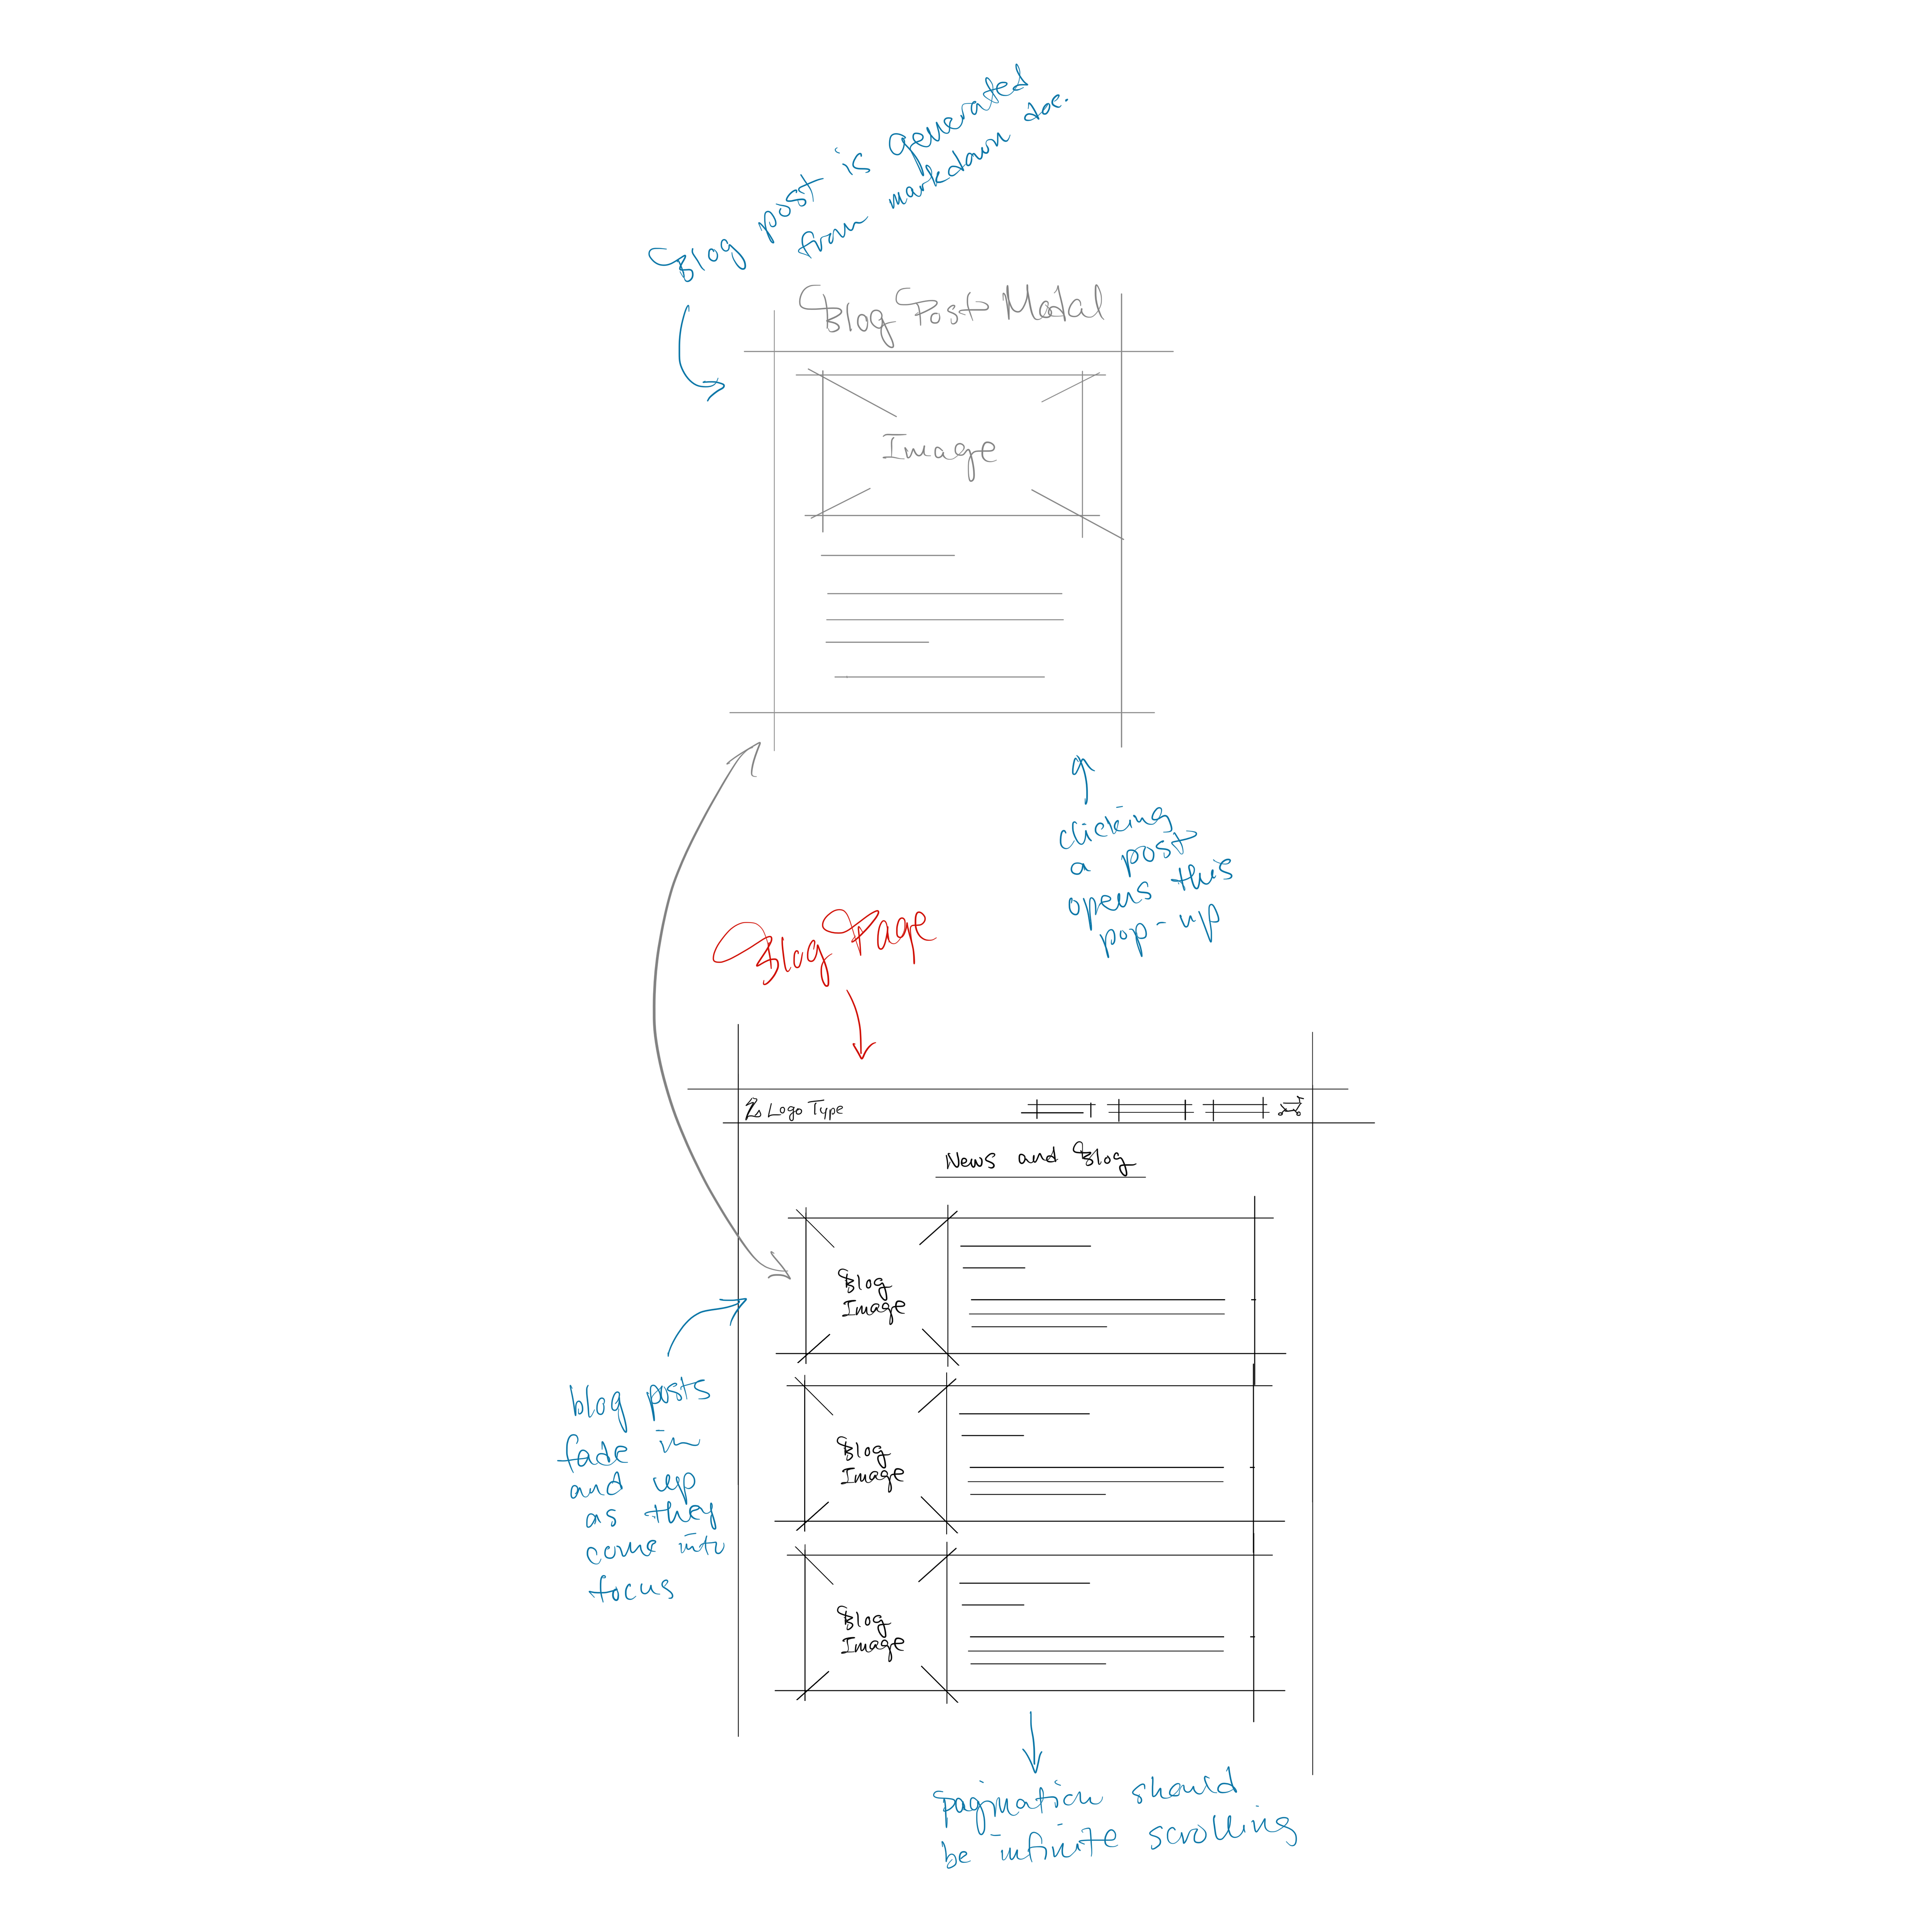 Blog post is generated
from markdown doc.
Blog Post Modal
Image
clicking
a post
opens this
pop-up
Blog Page
Logo Type
News and Blog
Blog
Image
blog posts
fade in
and up
as they
come into
focus
Blog
Image
Blog
Image
pagination should
be infinite scrolling